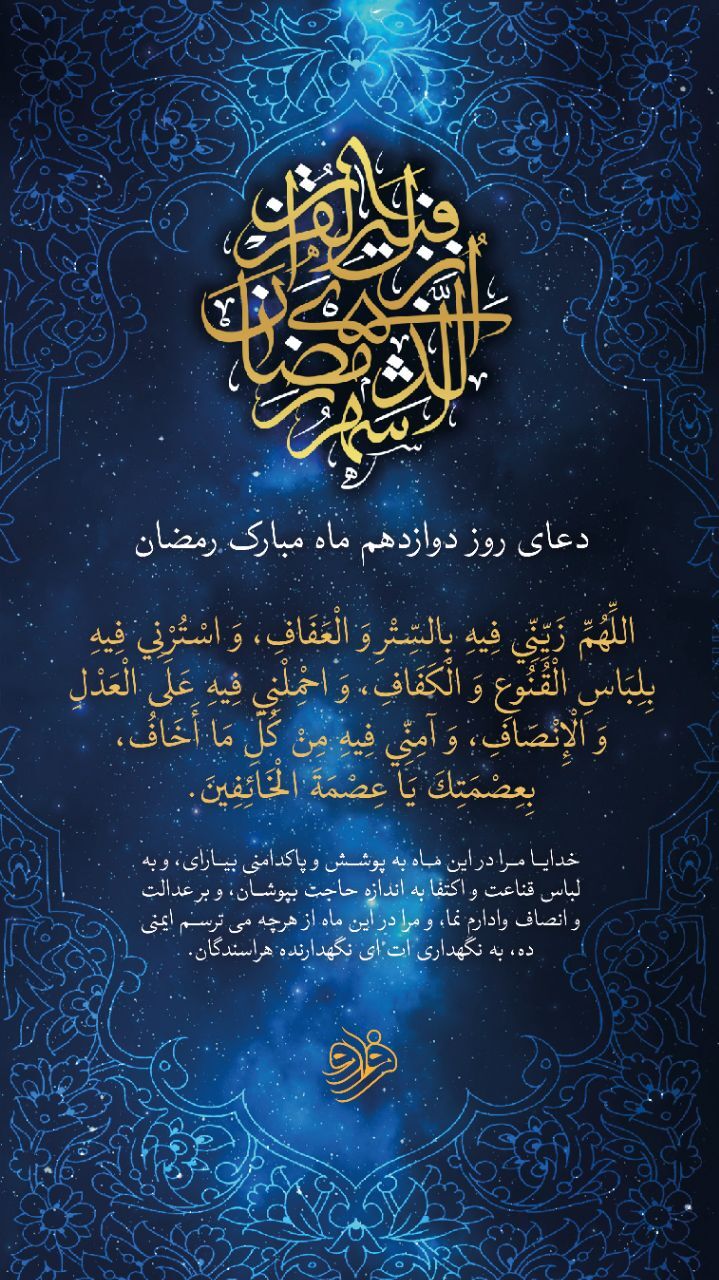 شهر رمضان الذي أنزل فيه القرآن
دعای روز دوازدهم ماه مبارک رمضان
اللَّهُمَّ زَيِّنِّي فِيهِ بِالسِّتْرِ وَ الْعَفَافِ، وَ اسْتُرْنِي فِيهِ
بِلِبَاسِ الْقُنُوعِ وَ الْكَفَافِ، وَ احْمِلْنِي فِيهِ عَلَى الْعَدْلِ
وَ الْإِنْصَافِ، وَ آمِنِّي فِيهِ مِنْ كُلِّ مَا أَخَافُ،
بِعِصْمَتِكَ يَا عِصْمَةَ الْخَائِفِينَ.
خدایا مرا در این ماه به پوشش و پاکدامنی بیارای، و به
لباس قناعت و اکتفا به اندازه حاجت بپوشان، و بر عدالت
و انصاف وادارم نما، و مرا در این ماه از هرچه می ترسم ایمنی
ده، به نگهداری ات ای نگهدارنده هراسندگان.